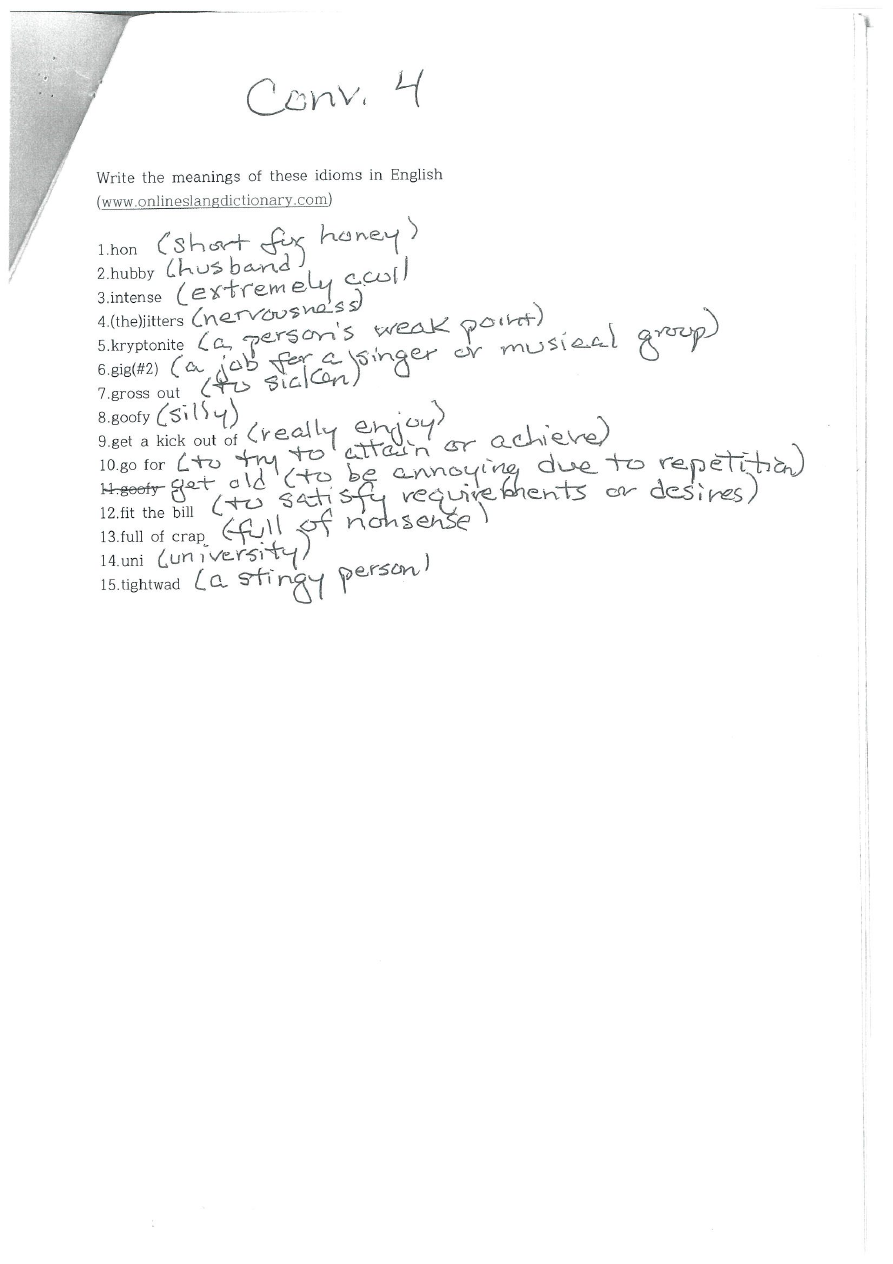 Conv. 4
Write the meanings of these idioms in English
(www.onlineslangdictionary.com)
1.hon (short for honey)
2.hubby (husband)
3.intense (extremely cool)
4.(the)jitters (nervousness)
5.kryptonite (a person's weak point)
6.gig(#2) (a job for a singer or musical group)
7.gross out (to sicken)
8.goofy (silly)
9.get a kick out of (really enjoy)
10.go for (to try to attain or achieve)
11.goofy get old (to be annoying due to repetition)
12.fit the bill (to satisfy requirements or desires)
13.full of crap (full of nonsense)
14.uni (university)
15.tightwad (a stingy person)